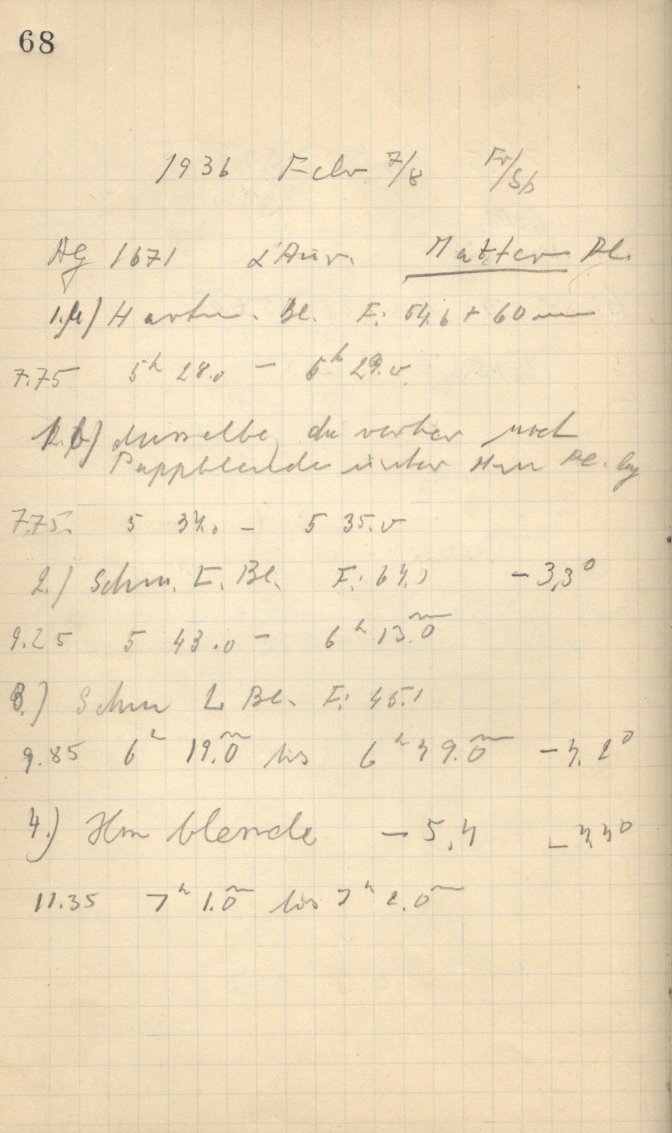 68
1936 Febr 7/8 Fr/Sb
AG 1671 α Aur. Matter Pl.
1.a) Hartm. Bl. F: 54,6 + 60 mm
7.75 5h 28.0 – 5h 29.0
1.b) dasselbe, da vorher noch
Pappblende unter Hm Bl. lag
7.75. 5 34.0 – 5 35.0
2.) Schm. L. Bl. F: – 3,3°
9.25 5 43.0 – 6h 13.0m
3.) Schm L Bl. F: 45.1
9.85 6h 19.0m bis 6h 49.0m – 4.2°
4.) Hm blende – 5,4 – 4,4°
11.35 7h 1.0m bis 7h 2.0m